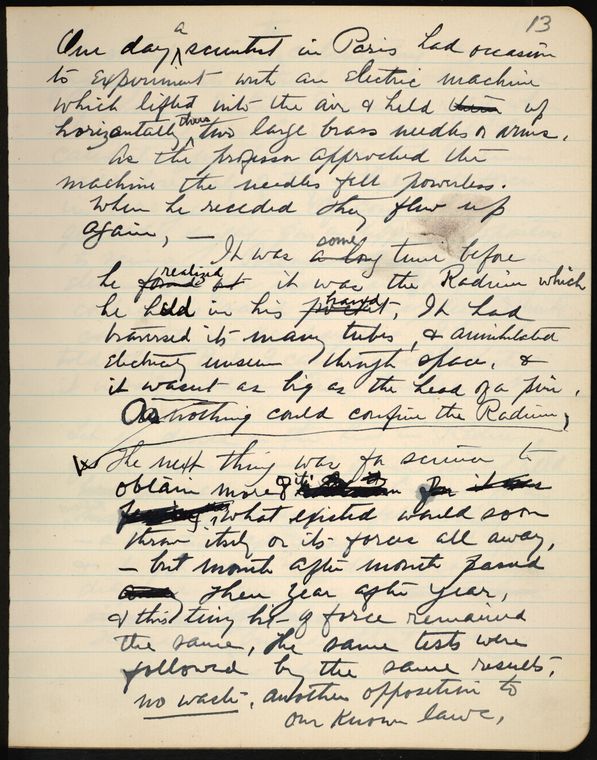 13
One day a scientist in Paris had occasion
to experiment with an Electric machine
which lifted into the air & held them up
horizontally these two large brass needles or arms.
As the professor approched the
machine the needles fell powerless.
When he receded they flew up
again, —
It was a long some time before
he found realized it was the Radium which
he held in his pocket hand, It had
traversed its many tubes, & annihilated
Electricity unseen through space, &
it wasent as big as the head of a pin.
As nothing could confine the Radium,
The next thing was for science to
obtain more of it
what existed would soon
throw itself or its forces all away,
— but month after month passed
and then Year after Year,
& this tiny bit of force remained
the same, the same tests were
followed by the same results,
no waste, another opposition to
our known laws,